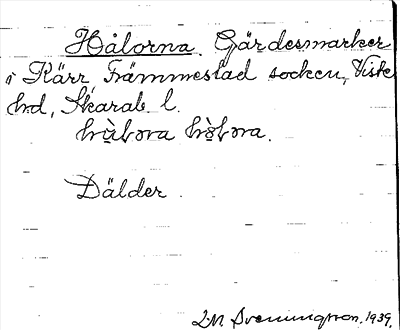 Hålorna. Gärdesmarker
i Kärr, Främmestad socken, Viste
hd, Skarab. l.
Dälder.
L.M. Svenungsson. 1939.